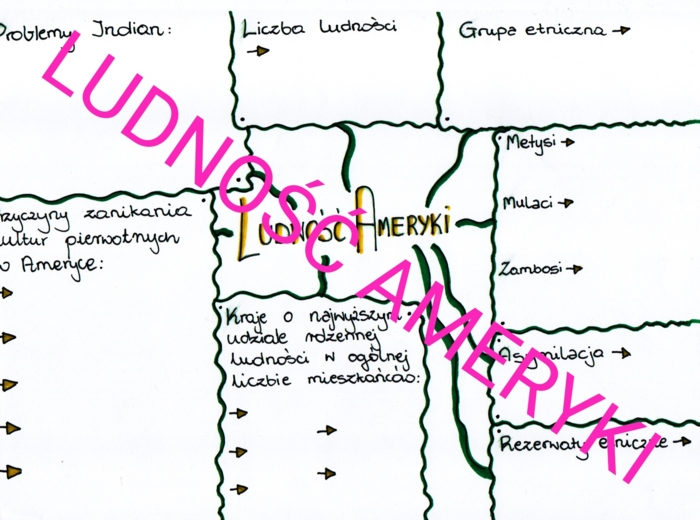 Problemy Indian:
Liczba ludności
Grupa etniczna
Metysi
Mulaci
Zambosi
LUDNOŚĆ AMERYKI
rzyczyny zanikania
ultur pierwotnych
w Ameryce:
Kraje o najwyższym
udziale rdzennej
ludności w ogólnej
liczbie mieszkańców:
Asymilacja
Rezerwaty etniczne
LUDNOŚĆ AMERYKI